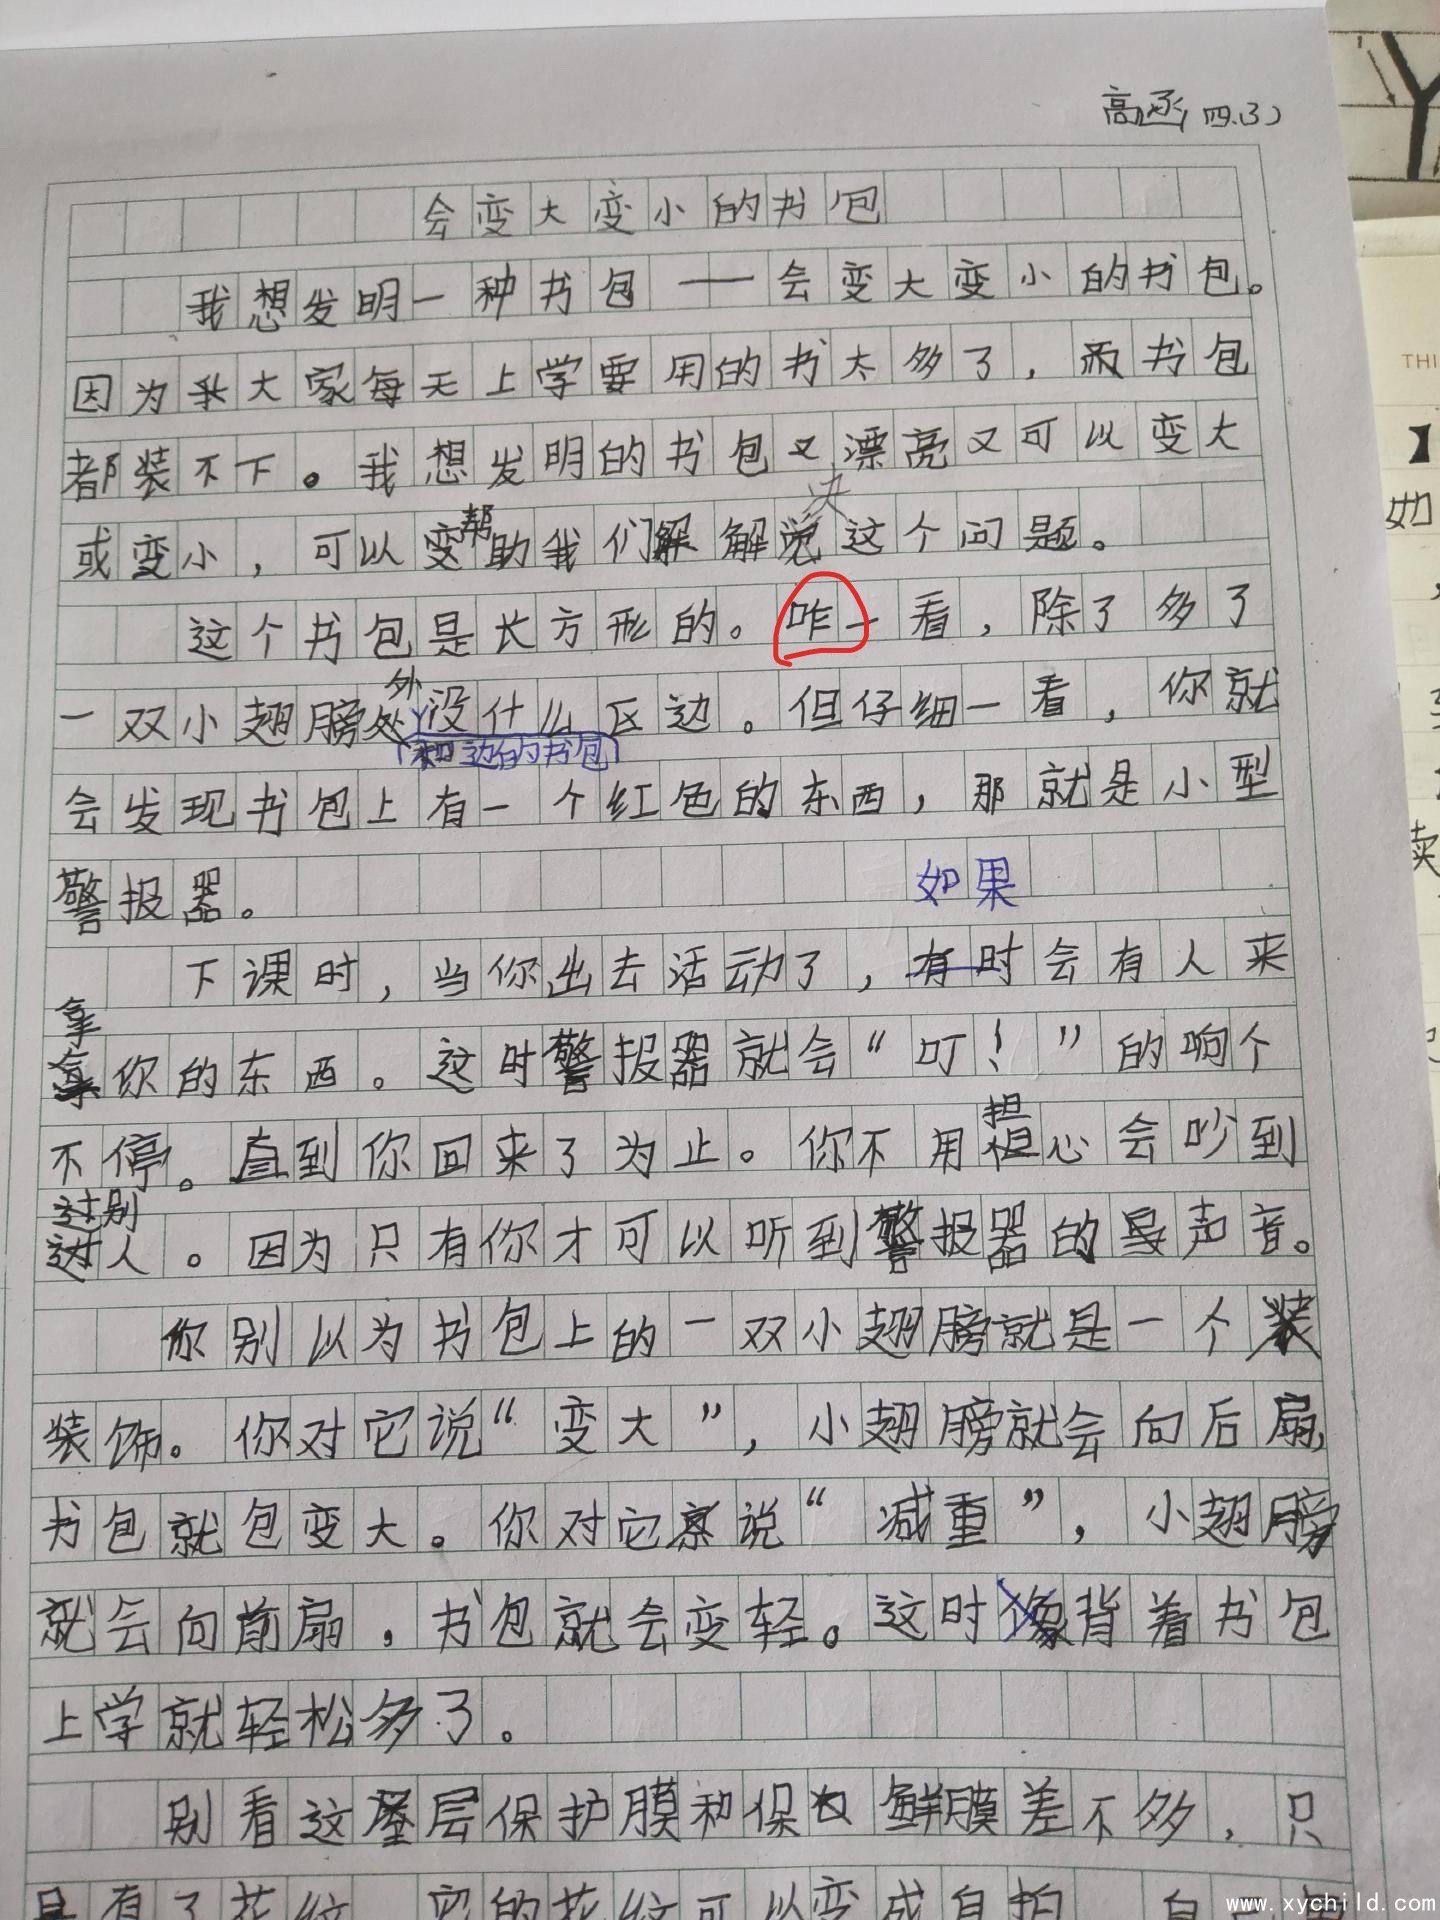 高函(四.(3)
会变大变小的书包
我想发明一种书包——会变大变小的书包。
因为大家每天上学要用的书太多了，而书包
都装不下。我想发明的书包又漂亮又可以变大
帮 决
或变小，可以变助我们解解说这个问题。
这个书包是长方形的。咋一看，除了多了
外
一双小翅膀处没什么区边。但仔细一看，你就
和边的书包
会发现书包上有一个红色的东西，那就是小型
警报器。
如果
下课时，当你出去活动了，有时会有人来
拿
拿你的东西。这时警报器就会“叮！”的响个
担
不停。直到你回来了为止。你不用担心会吵到
过别
人。因为只有你才可以听到警报器的声音。
你别以为书包上的一双小翅膀就是一个装
装饰。你对它说“变大”，小翅膀就会向后扇，
书包就包变大。你对它说“减重”，小翅膀
就会向前扇，书包就会变轻。这时像背着书包
上学就轻松多了。
别看这层保护膜和保鲜膜差不多，只
是有了花纹 它的花纹可以变成自拍
THI
如
www.xychild.com